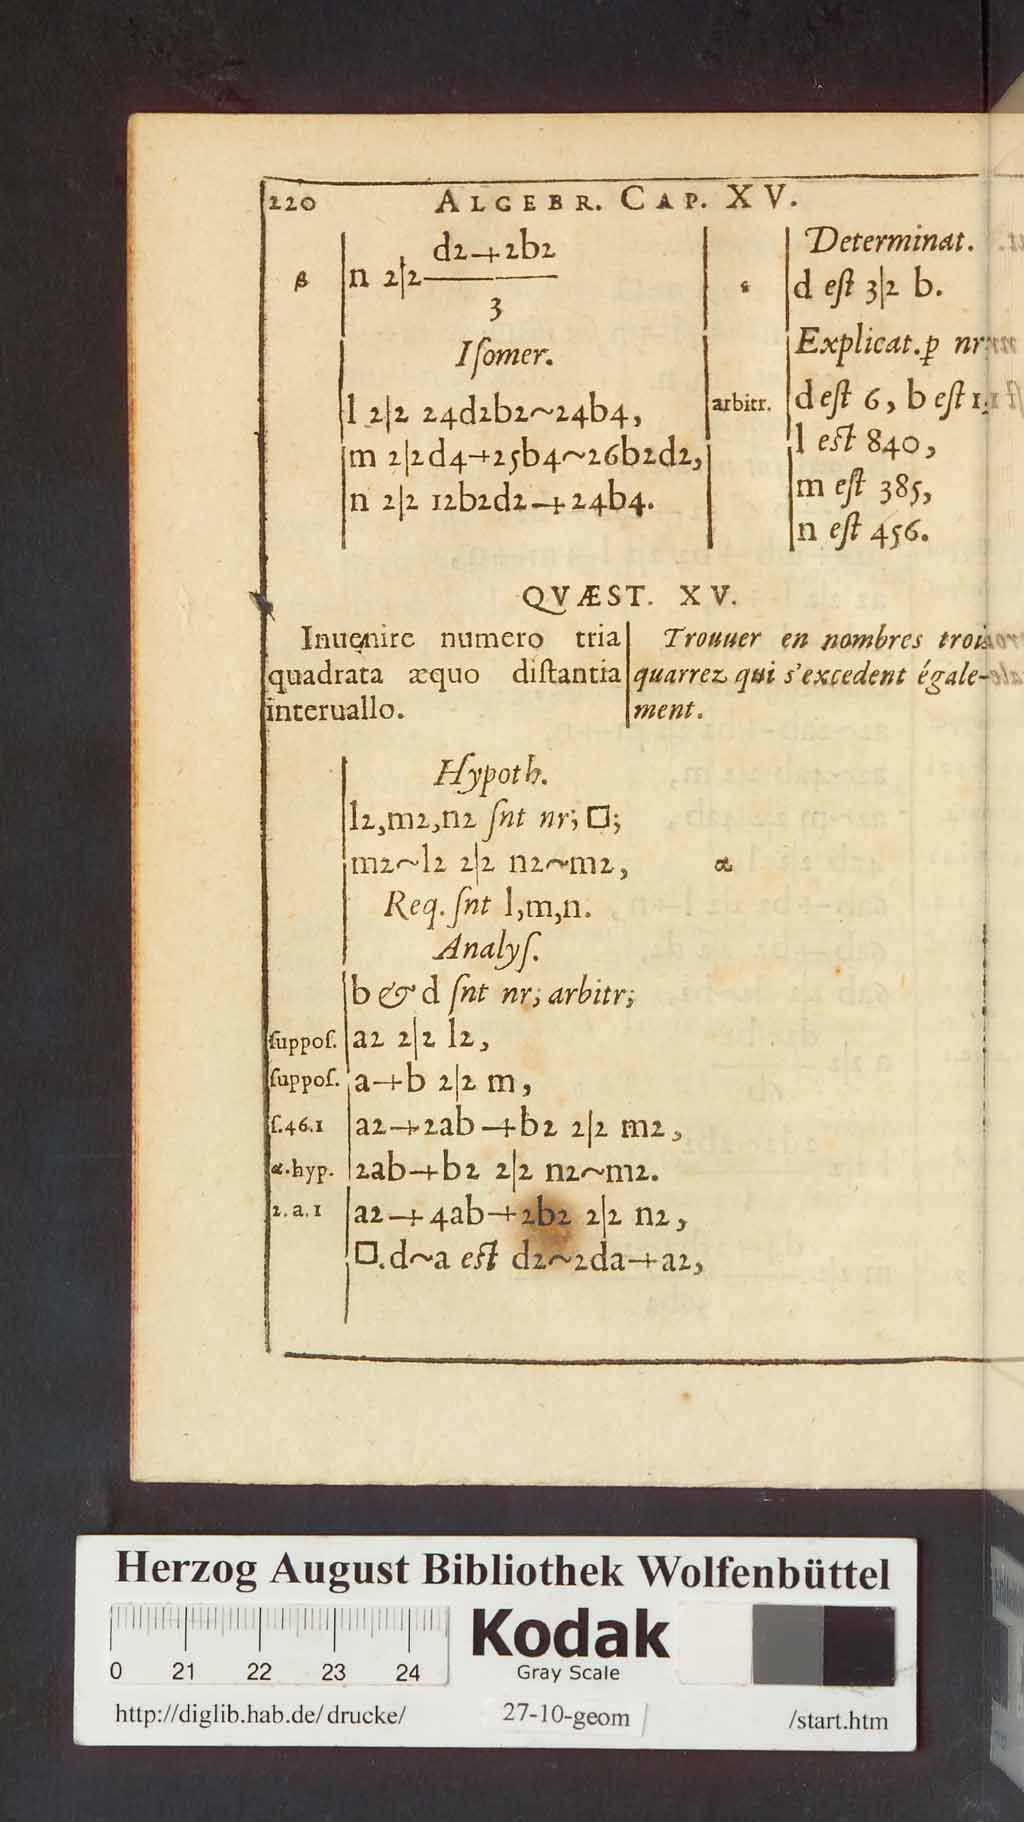 220 ALGEBR. CAP. XV.
d2-+2b2
β n 2|2
3
Isomer.
l 2|2 24d2b2~24b4,
m 2|2d4-+25b4~26b2d2,
n 2|2 12b2d2-+24b4.
Determinat.
d est 3|2 b.
Explicat.p nr
arbitr. d est 6, b est 1.
l est 840,
m est 385,
n est 456.
QVÆST. XV.
Inuenire numero tria
quadrata æquo distantia
interuallo.
Trouuer en nombres trois
quarrez qui s'excedent égale-
ment.
Hypoth.
l2,m2,n2 snt nr; □;
m2~l2 2|2 n2~m2, α
Req. snt l,m,n.
Analys.
b & d snt nr; arbitr;
suppos. a2 2|2 l2,
suppos. a-+b 2|2 m,
f.46.1 a2-+2ab-+b2 2|2 m2,
α.hyp. 2ab-+b2 2|2 n2~m2.
2.a.1 a2-+4ab-+2b2 2|2 n2,
□.d~a est d2~2da-+a2,
Herzog August Bibliothek Wolfenbüttel
0 21 22 23 24
Kodak
Gray Scale
http://diglib.hab.de/drucke/ 27-10-geom /start.htm